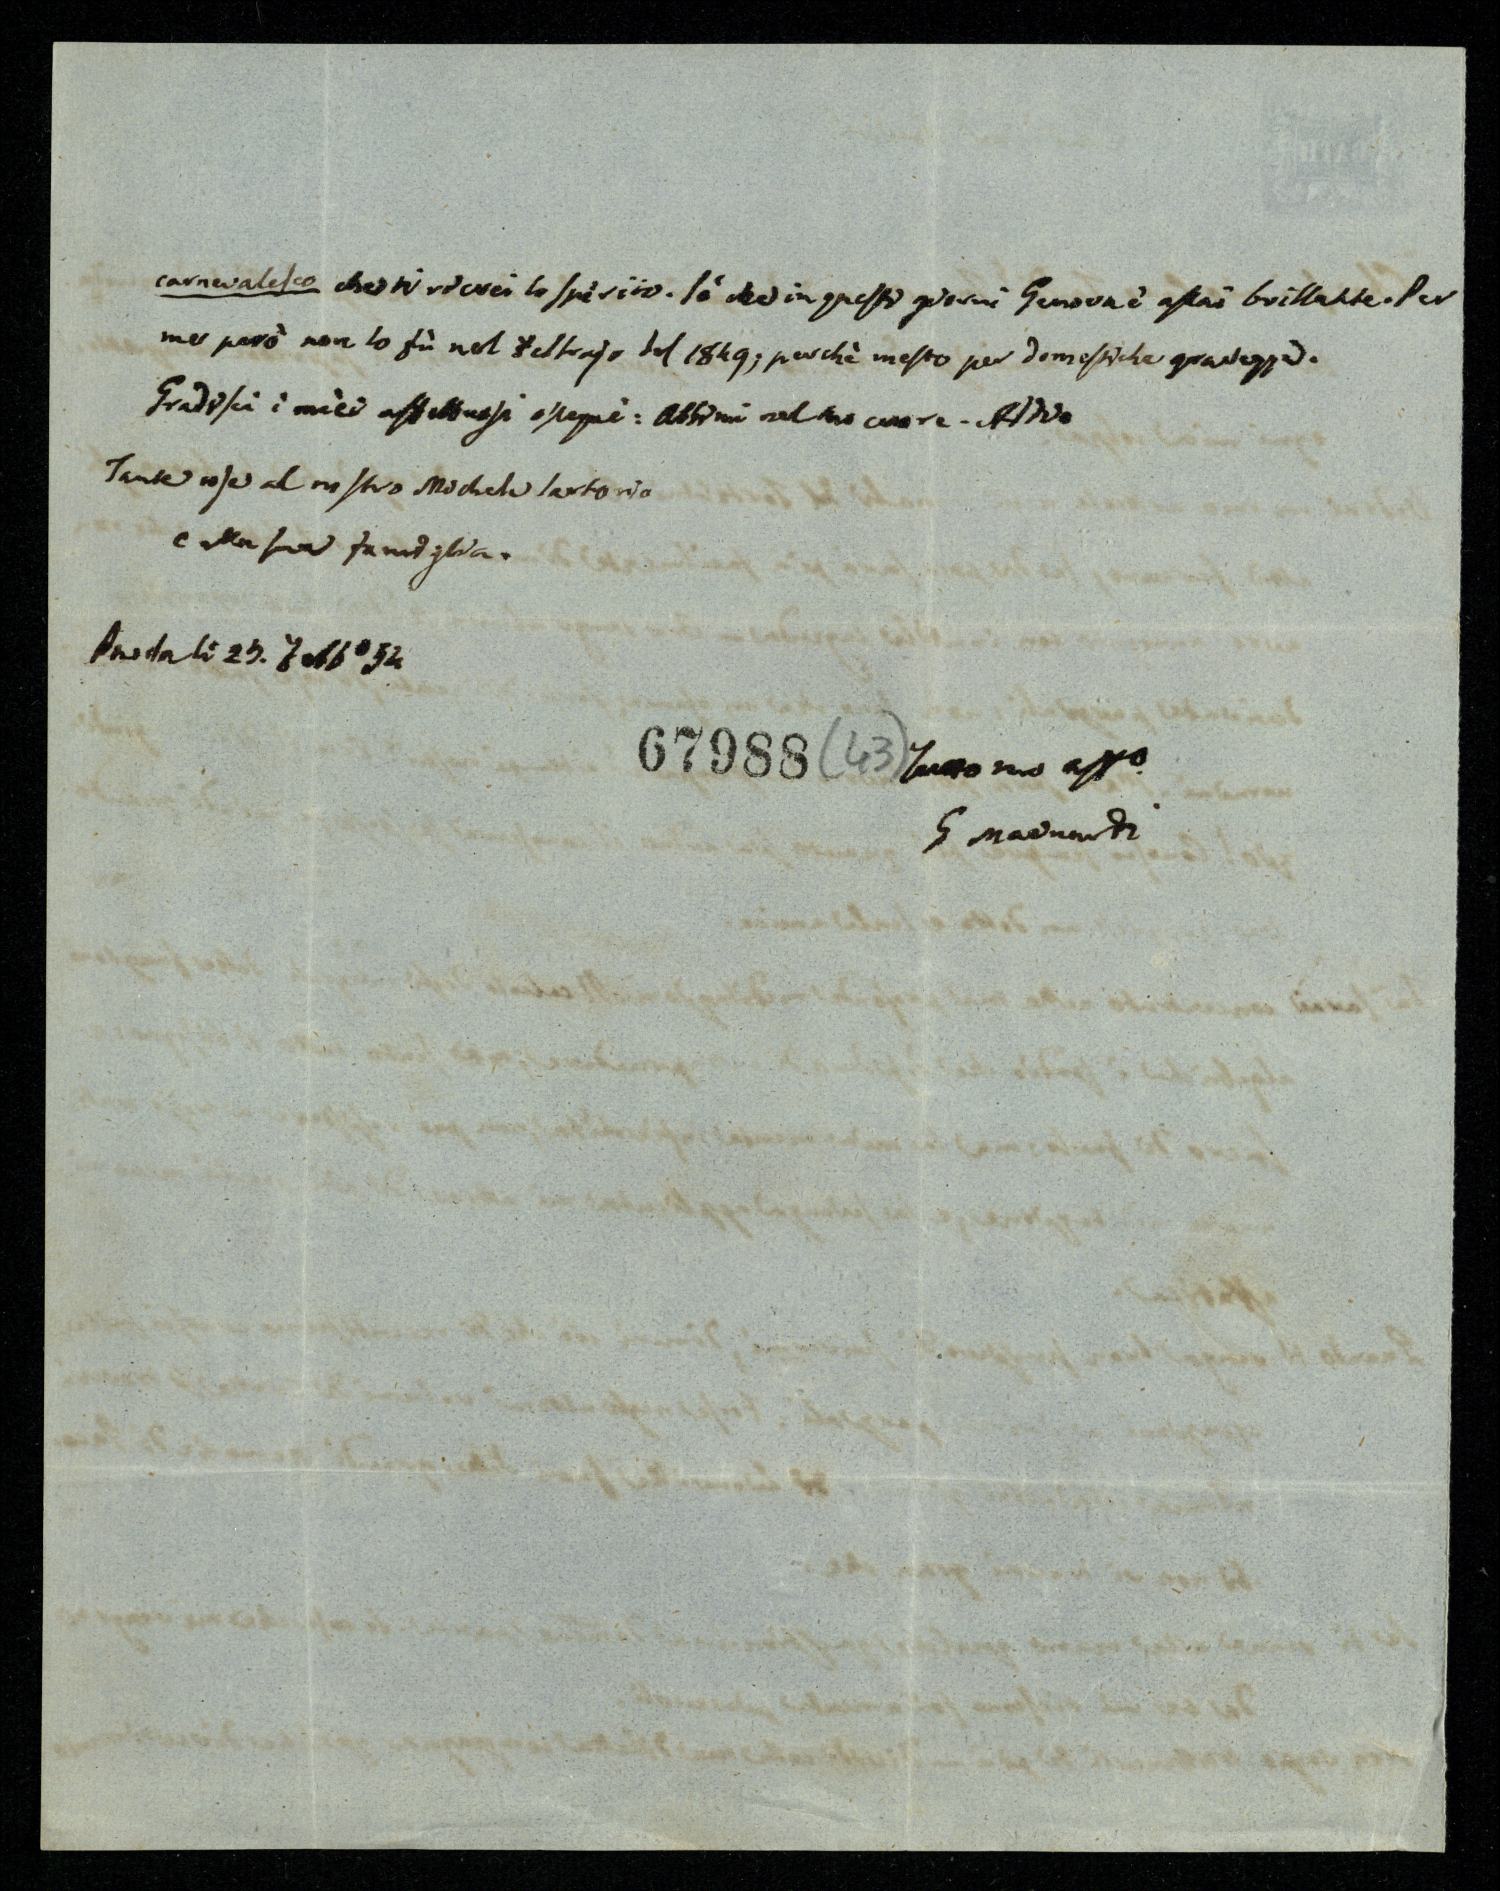 carnevalesco che ti ricrei lo spirito. So che in questi giorni Genova è assai brillante. Per
me però non lo fù nel Febrajo del 1849; perchè mesto per domestiche gravezze.
Gradisci i miei affettuosi ossequi: Abbimi nel tuo cuore. Addio
Tante cose al nostro Michele Sartorio
e alla sua famiglia.
li 25. Febb° 54
67988 (43) Tutto tuo aff°.
G